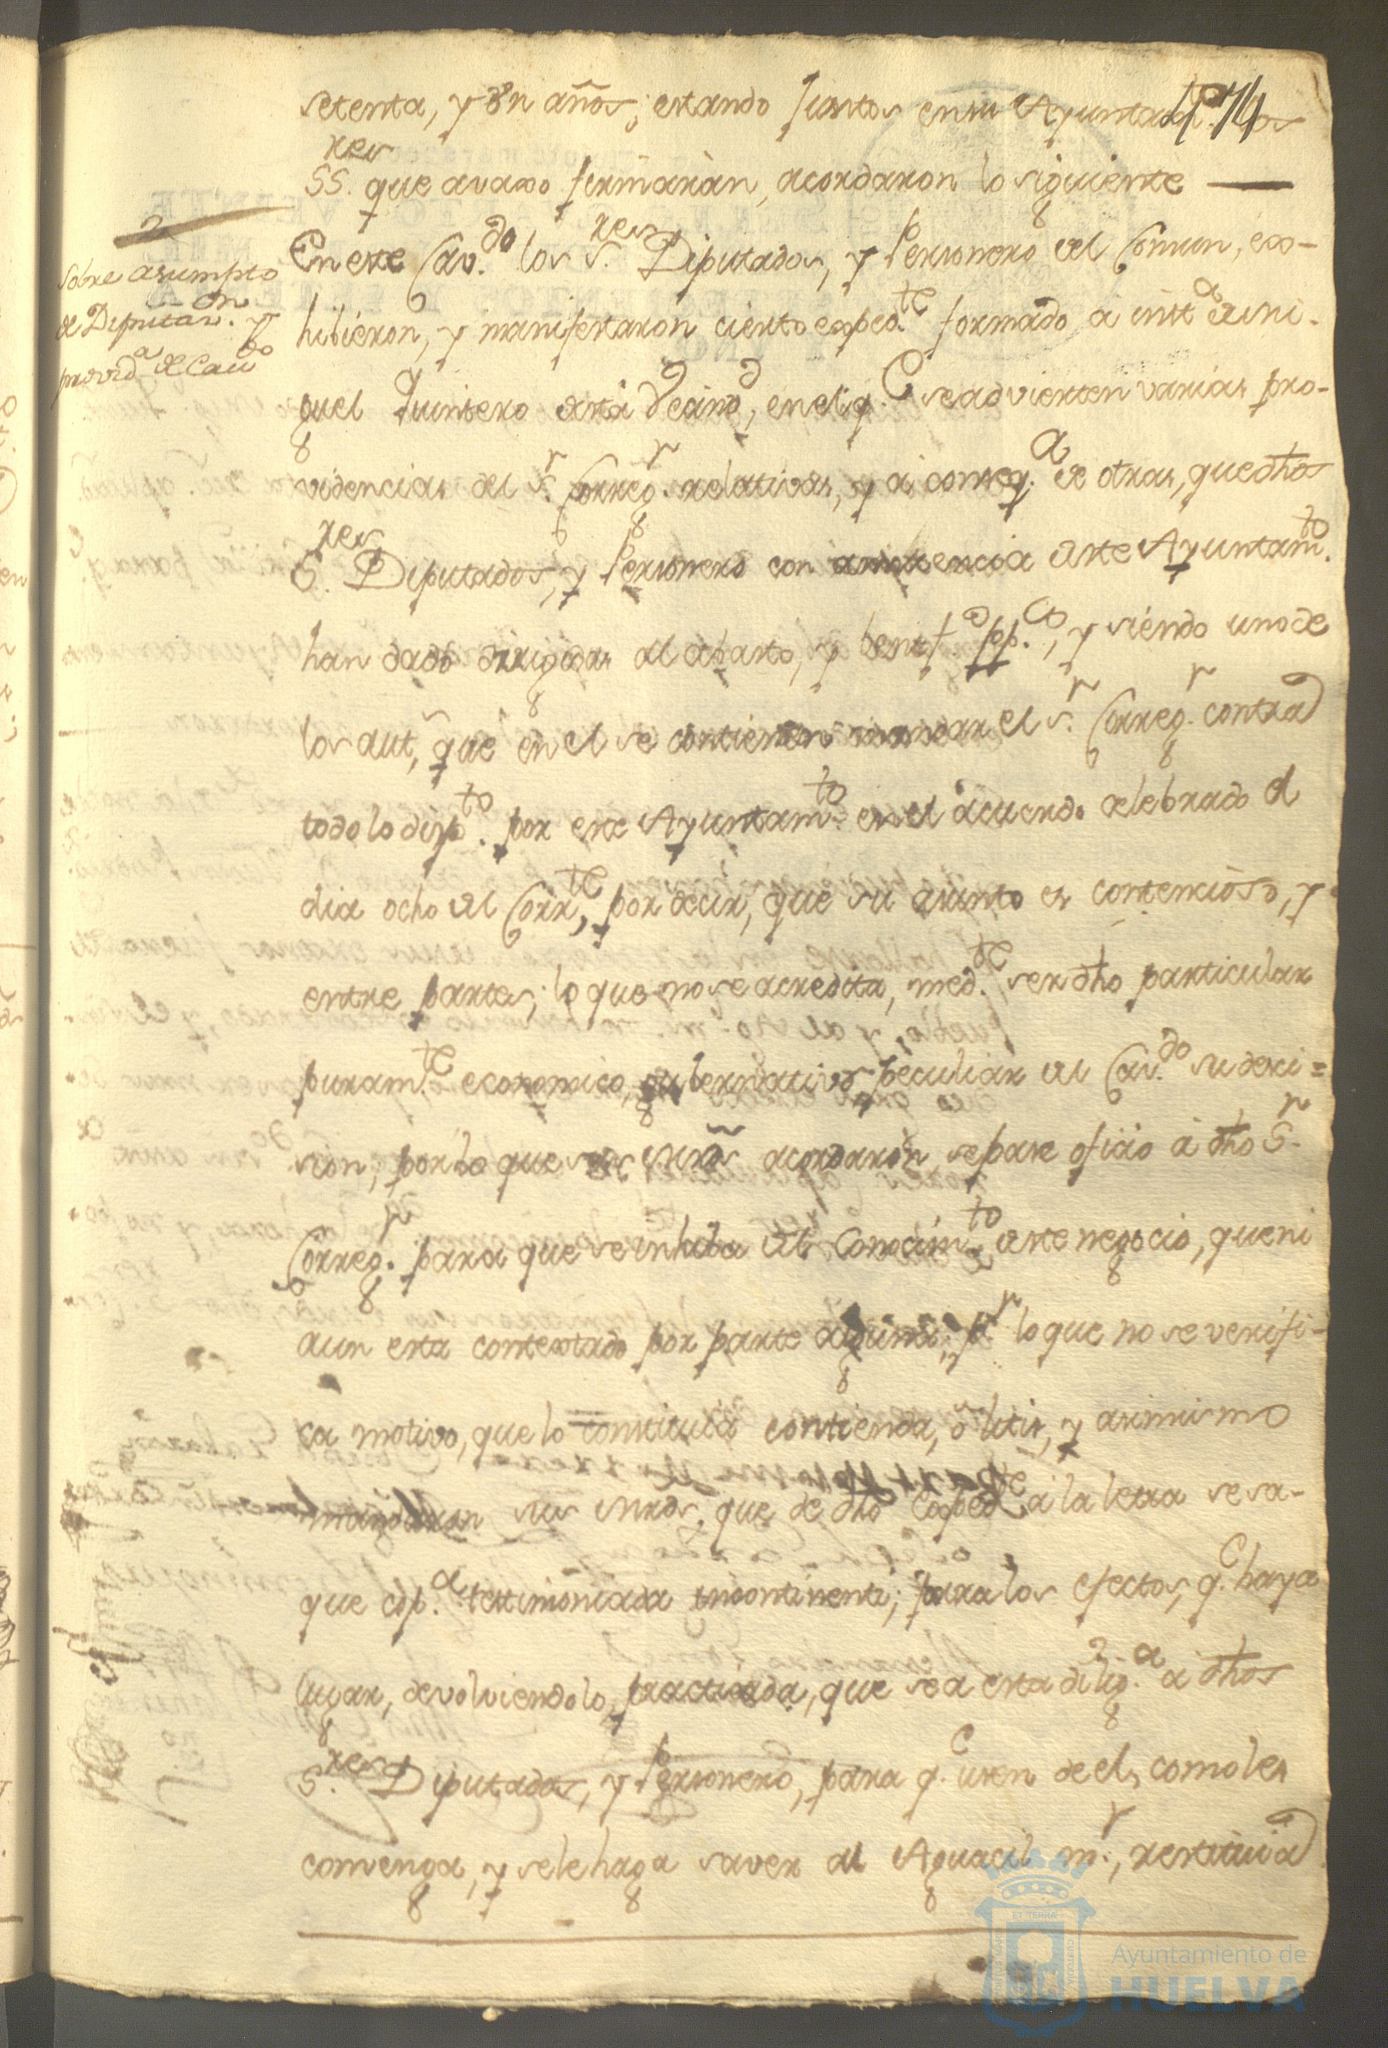 174
setenta, y un años; estando juntos en su Ayuntam.to los
SS.res que avaxo firmaràn, acordaron lo siguiente —
2
Sobre asumpto
de Diputaz.on y
provid.a de Cav.do
En este Cav.do los S.res Diputados, y Personero del Comun, exo-
hibieron, y manifestaron cierto exped.te formado à inst.a de Mi-
guel Quintero desta Vecind.d, en el q.e se advierten varias pro-
videncias del S.r Correg.r relativas, y à conseq.a de otras, que dhos
S.res Diputados, y Personero con asistencia deste Ayuntam.to
han dado dirigidas al abasto, y benef.o pp.co, y siendo uno de
los aut.s que en el se contienen mandar el S.r Correg.r contra
todo lo disp.to por este Ayuntam.to en el acuerdo celebrado el
dia ocho del Corr.te, por decir, que su asunto es contencioso, y
entre partes; lo que no se acredita, med.te ser dho particular
puram.te economico, gubernativo, peculiar del Cav.do su deci=
sion; por lo que sus mrds acordaron se pase oficio à dho S.r
Correg.r para que se inhiba del Conocim.to deste negocio, que ni
aun esta contextado por parte alguna; p.r lo que no se verifi-
ca motivo, que lo constituia contienda, ò litis, y asimismo
mandaron sus mrds. que de dho Exped.te a la letra se sa-
que cop.a testimoniada incontinenti; para los efectos, q.e haya
lugar, devolviendolo, practicada, que sea esta dilig.a a dhos
S.res Diputados, y Personero, para q.e usen de el, como les
convenga, y se le haga saver al Aguacil m.r, restituia
Ayuntamiento de
HUELVA